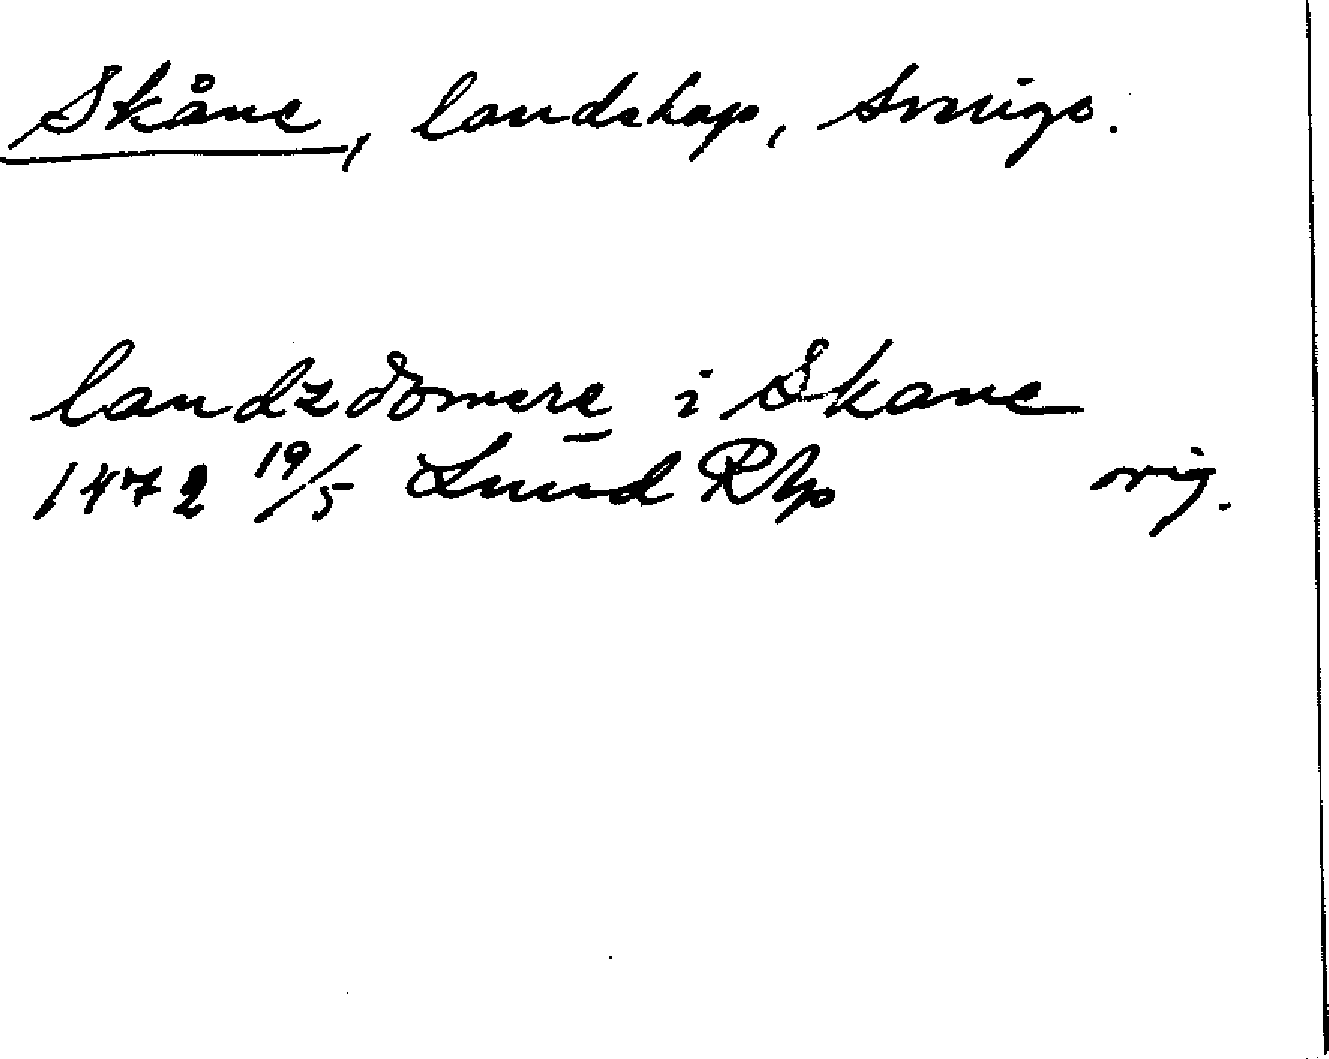 Skåne, landskap, Sverige.
landzdomere i Skane
1472 19/5 Lund Rhp orig.